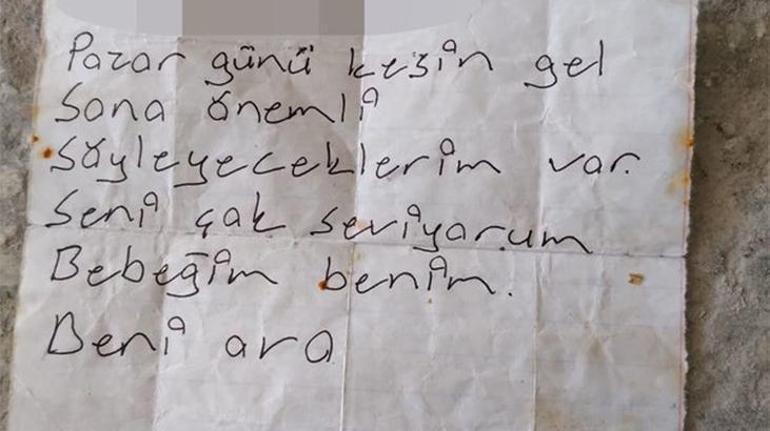 Pazar günü kesin gel
Sana önemli
Söyleyeceklerim var.
Seni çok seviyorum
Bebeğim benim.
Beni ara